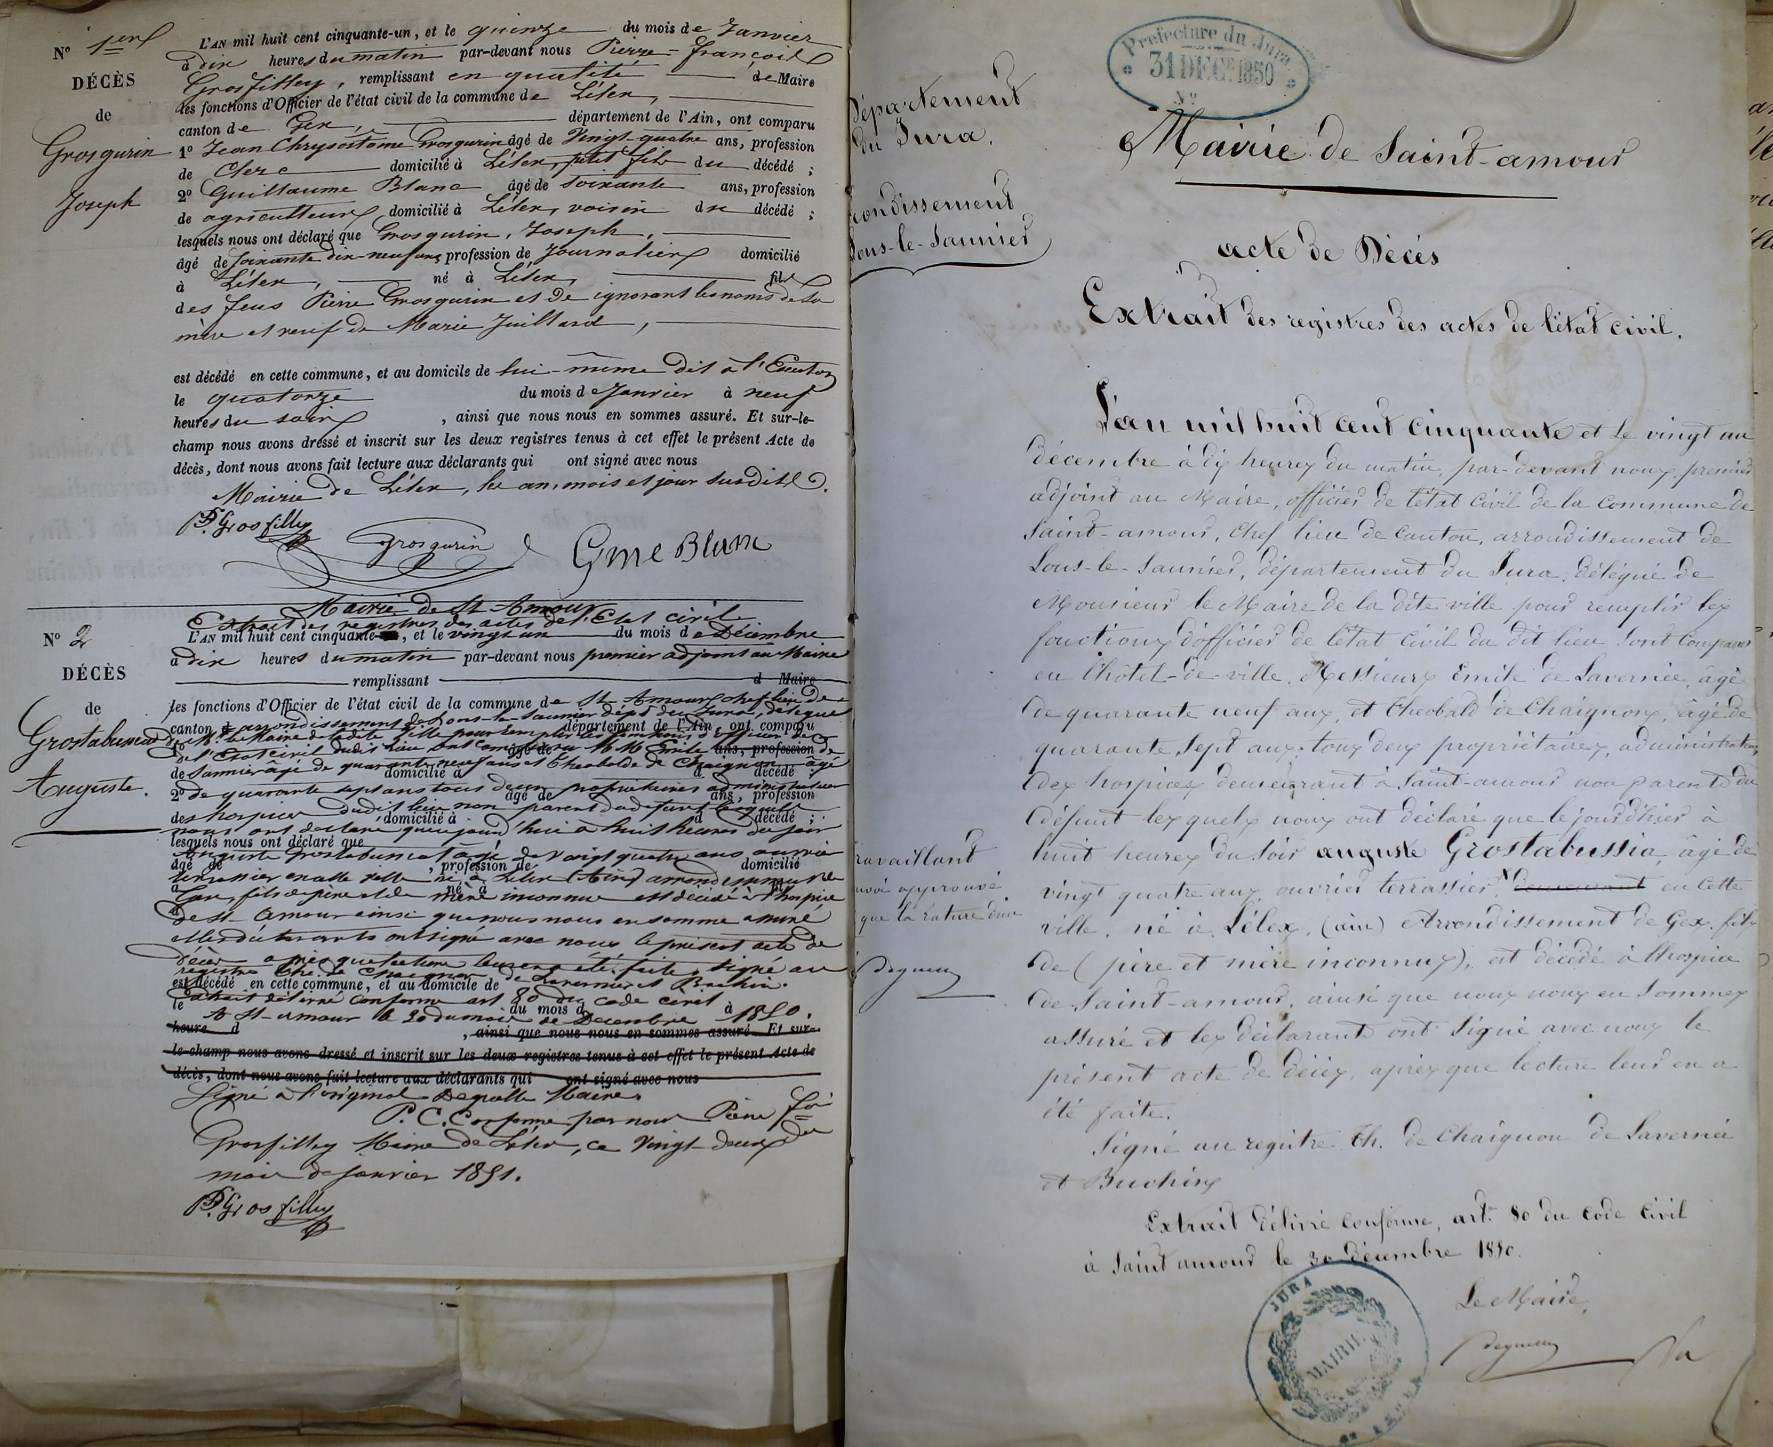 N° 1er
DÉCÈS
de
Grosgurin
Joseph
L'AN mil huit cent cinquante-un, et le quinze du mois de Janvier
à dix heures du matin par-devant nous Pierre-François
Grosfilley, remplissant en qualité de Maire
les fonctions d'Officier de l'état civil de la commune de Lélex,
canton de Gex, département de l'Ain, ont comparu
1° Jean Chrysostome Grosgurin âgé de Vingt quatre ans, profession
de Clerc domicilié à Lélex, petit fils du décédé ;
2° Guillaume Blanc âgé de soixante ans, profession
de agriculteur domicilié à Lélex, voisin du décédé ;
lesquels nous ont déclaré que Grosgurin, Joseph,
âgé de soixante dix-neuf ans, profession de Journalier domicilié
à Lélex, né à Lélex, fils
des feus Pierre Grosgurin et de ignorant les noms de la
mère et veuf de Marie Juilland,
est décédé en cette commune, et au domicile de lui-même dit à l'
le quatorze du mois de Janvier à neuf
heures du soir, ainsi que nous nous en sommes assuré. Et sur-le-
champ nous avons dressé et inscrit sur les deux registres tenus à cet effet le présent Acte de
décès, dont nous avons fait lecture aux déclarants qui ont signé avec nous
Mairie de Lélex, les an, mois et jour susdits.
P.F. Grosfilley
Grosgurin
Gme Blanc
N° 2
DÉCÈS
de
Grostabussiat
Auguste.
Mairie de St Amour
Extrait des registres des actes de l'Etat civil
L'AN mil huit cent cinquante, et le vingt un du mois de Décembre
à dix heures du matin par-devant nous premier adjoint au Maire
remplissant d Maire
les fonctions d'Officier de l'état civil de la commune de St Amour chef lieu de
canton arrondissement de Lons-le-Saunier dépt du Jura délégué
département de l'Ain, ont comparu
de Mr le Maire de la dite ville pour remplir les fonctions d'officier de
l'Etat civil dudit lieu ont comparu MM Emile de
âgé de ans, profession
âgé de quarante neuf ans et Theobalde de Chaignon âgé
de domicilié à d décédé ;
2° de quarante sept ans tous deux propriétaires administrateurs
âgé de ans, profession
des hospices dudit lieu non parents du défunt lesquels
domicilié à d décédé ;
nous ont déclaré que à huit heures du soir
lesquels nous ont déclaré que
Auguste Grostabussiat âgé de vingt quatre ans ouvrier
âgé de , profession de domicilié
terrassier en cette ville né à Lélex (Ain) arrondissement de
à né à fils
Gex, fils de père et de mère inconnus est décédé à l'hospice
de St Amour ainsi que nous nous en somme assuré
et les déclarants ont signé avec nous le présent acte de
décès après que lecture leur en a été faite. Signé au
registre Th. de Chaignon de Lavernée et Buchin.
est décédé en cette commune, et au domicile de
Extrait délivré conforme art. 80 du code civil
le du mois d à
A St-Amour le 30 du mois de Décembre 1850.
heure d , ainsi que nous nous en sommes assuré. Et sur-
le-champ nous avons dressé et inscrit sur les deux registres tenus à cet effet le présent Acte de
décès, dont nous avons fait lecture aux déclarants qui ont signé avec nous
Signé à l'original Maire.
P. C. Conforme par nous Pierre foi
Grosfilley Maire de Lélex, ce Vingt-deux du
mois de Janvier 1851.
P.F. Grosfilley
Préfecture du Jura
31 DEC. 1850
N°
Département
du Jura.
rondissement
Lons-le-Saunier
Mairie de Saint-amour
acte de Décès
Extrait des registres des actes de l'état civil.
L'an mil huit cent cinquante et le vingt un
décembre à dix heures du matin, par-devant nous, premier
adjoint au Maire, officier de l'état civil de la commune de
Saint-amour, chef lieu de canton, arrondissement de
Lons-le-Saunier, département du Jura, délégué de
Monsieur le Maire de la dite ville pour remplir les
fonctions d'officier de l'état civil du dit lieu sont comparus
en l'hôtel-de-ville, Messieurs Emile de Lavernée, âgé
de quarante neuf ans, et Theobald de Chaignon, âgé de
quarante sept ans, tous deux propriétaires, administrateurs
des hospices demeurant à Saint-amour non parents du
défunt lesquels nous ont déclaré que le jour d'hier à
huit heures du soir auguste Grostabussia, âgé de
vingt quatre ans ouvrier terrassier, demeurant en cette
ville, né à Lélex, (ain) Arrondissement de Gex, fils
de (père et mère inconnus), est décédé à l'hospice
de Saint-amour, ainsi que nous nous en sommes
assuré et les déclarants ont signé avec nous le
présent acte de décès, après que lecture leur en a
été faite.
Signé au registre Th. de Chaignon de Lavernée
et Buchin
Extrait délivré conforme, art. 80 du code civil
à Saint amour le 30 décembre 1850.
Le Maire,
travaillant
approuvé
que la rature d'un
JURA
MAIRIE